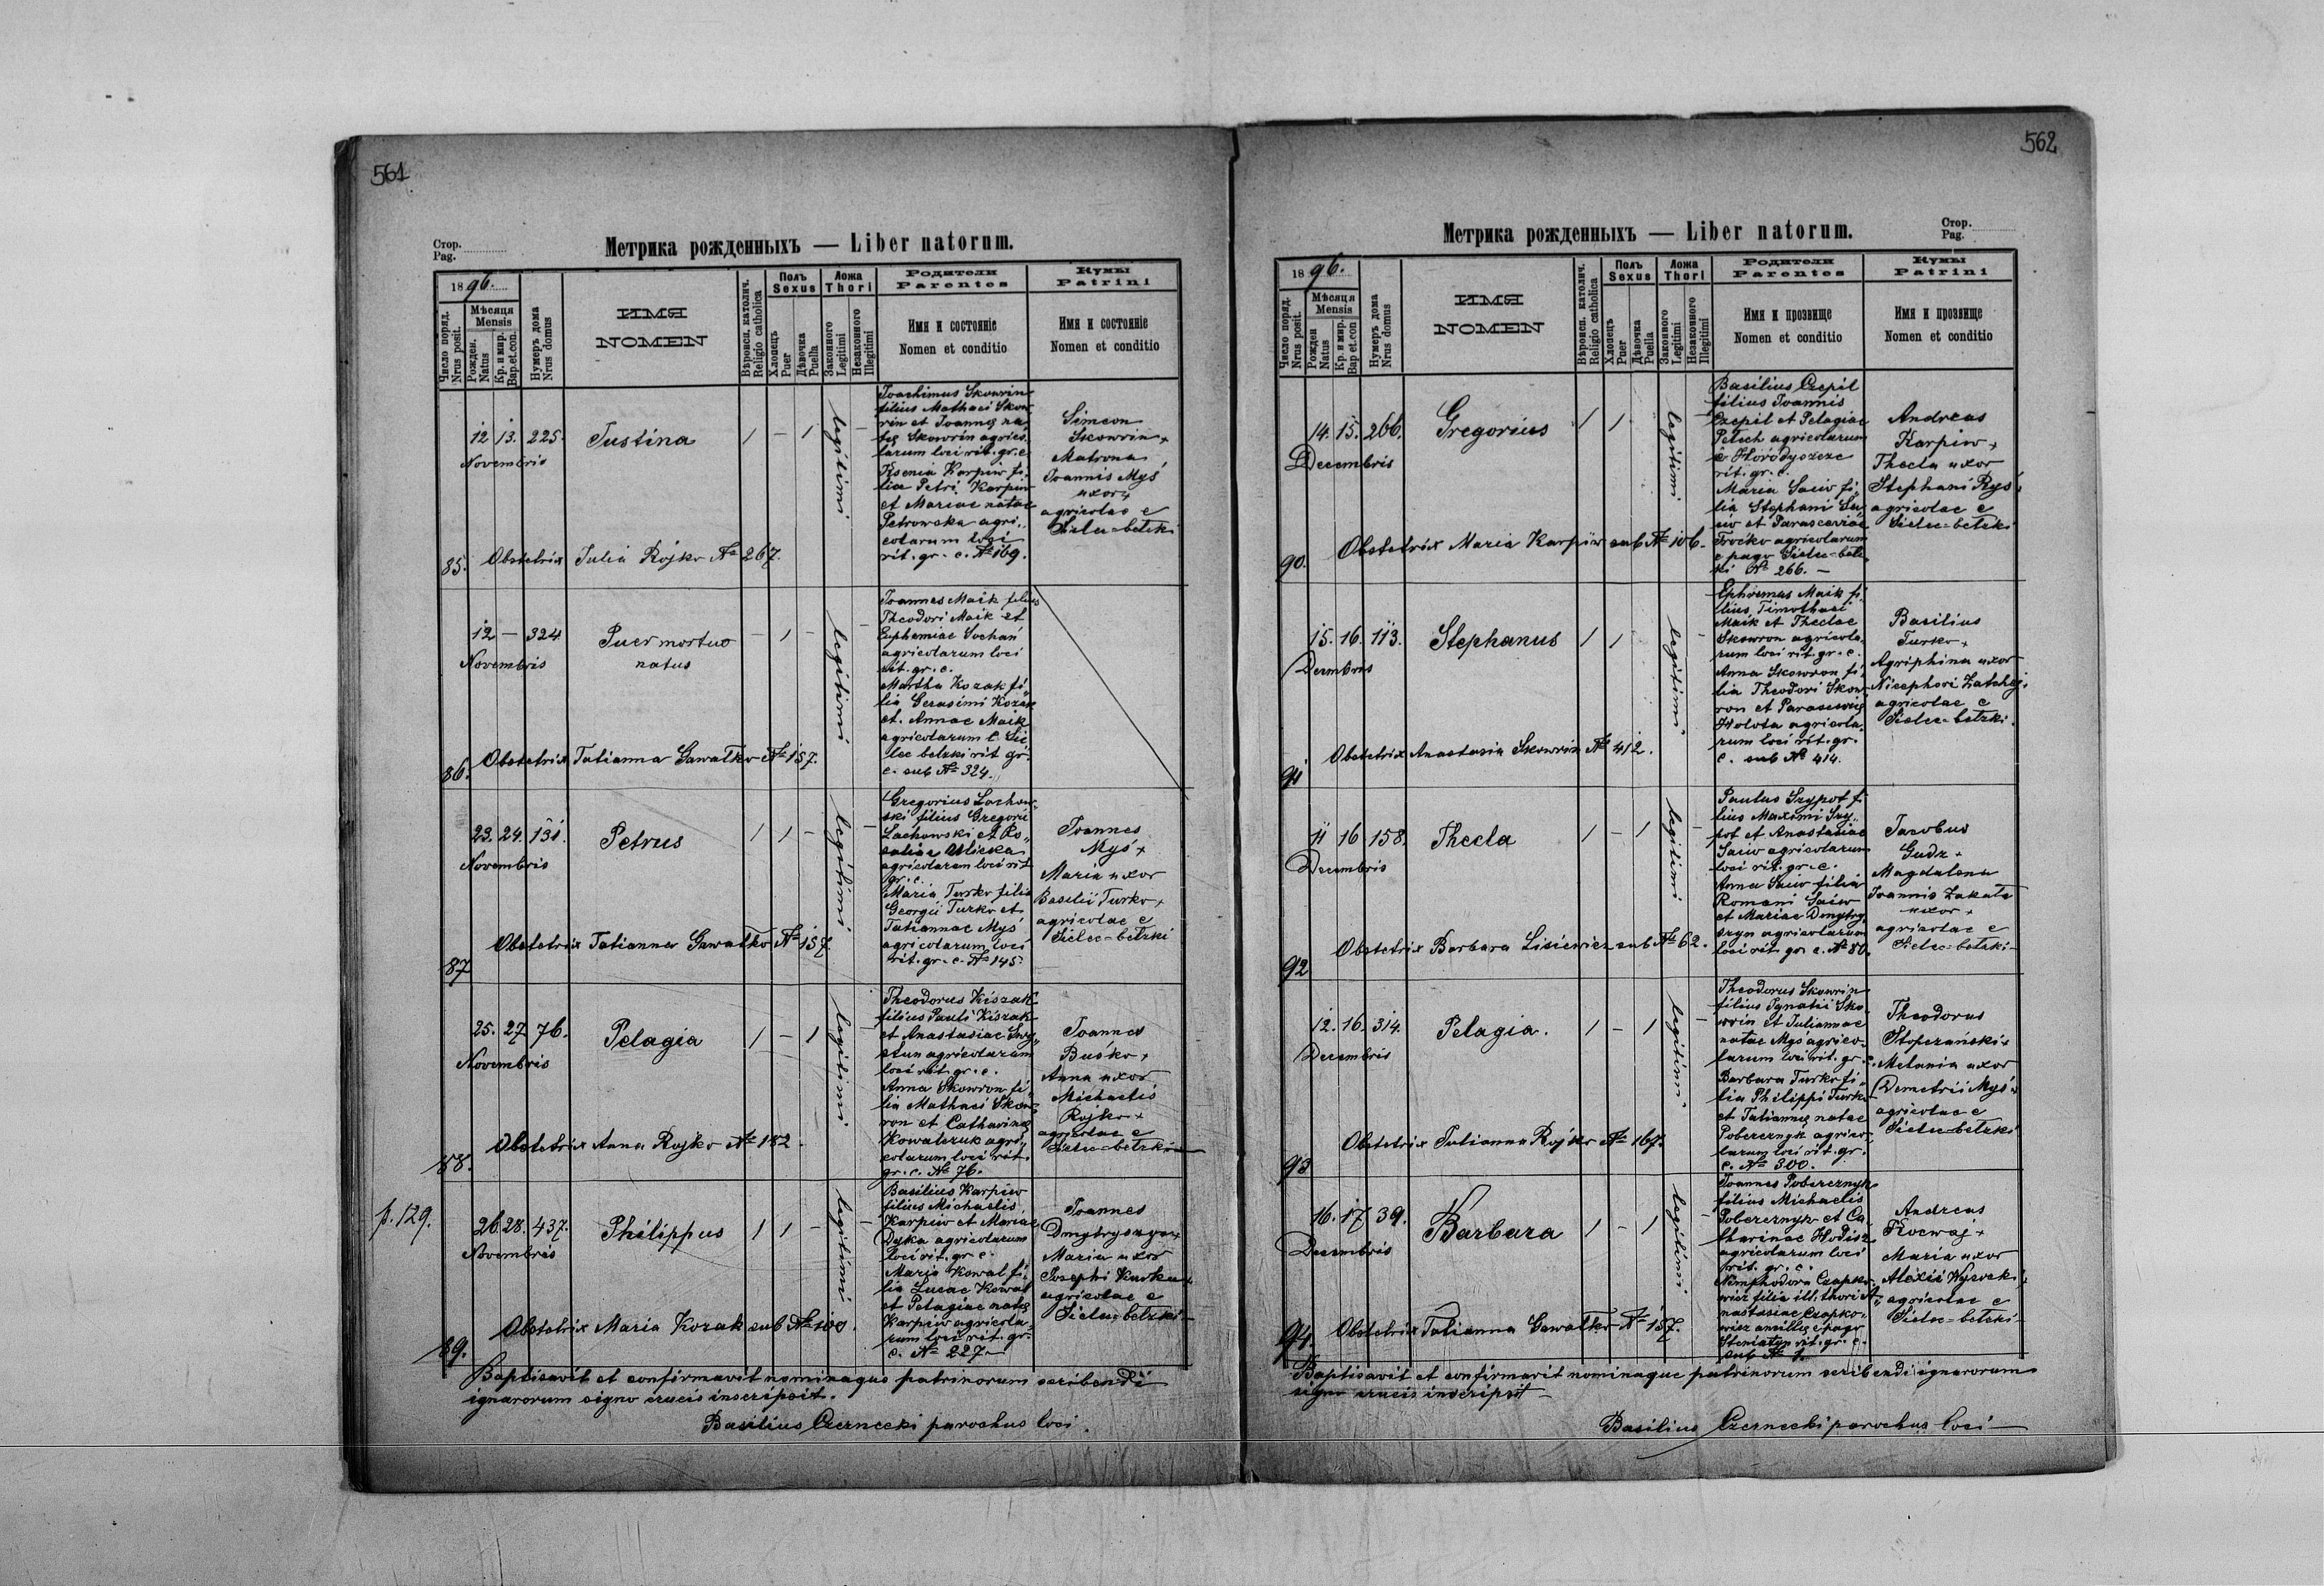 561
Стор.
Pag.
Метрика рожденныхъ — Liber natorum.
1896.
Число поряд.
Nrus posit.
Мѣсяця
Mensis
Рожден.
Natus
Кр. и мир.
Bap. et con.
Нумеръ дома
Nrus domus
ИМЯ
NOMEN
Вѣроисп. католич.
Religio catholica
Полъ
Sexus
Хлопецъ
Puer
Дѣвочка
Puella
Ложа
Thori
Законного
Legitimi
Незаконного
Illegitimi
Родители
Parentes
Имя и состояніе
Nomen et conditio
Кумы
Patrini
Имя и состояніе
Nomen et conditio
85.
12 13. 225.
Novembris
Justina
/ - /
legitimi
Joachimus Skowrin
filius Mathaei Skow
rin et Joannę na
tę Skowrin agrico
larum loci rit. gr. c.
Ksenia Karpiw fi
lia Petri Karpiw
et Mariae natae
Petrowska agri
colarum loci
rit. gr. c. № 169.
Simeon
Skowrin +
Matrona
Joannis Myś
uxor +
agricolae e
Sielec-bełzki
Obstetrix Julia Rojko № 267.
86.
12 — 324
Novembris
Puer mortuo
natus
- / -
legitimi
Joannes Maik filius
Theodori Maik et
Euphemiae Sochań
agricolarum loci
rit. gr. c.
Martha Kozak fi
lia Gerasimi Kozak
et Annae Maik
agricolarum e Sie
lec bełzki rit. gr.
c. sub № 324.
Obstetrix Tatianna Gawałko № 157.
87
23. 24. 131.
Novembris
Petrus
/ / -
legitimi
Gregorius Lachow
ski filius Gregorii
Lachowski et Ro
saliae Ulicka
agricolarum loci rit
gr. c.
Maria Turko filia
Georgii Turko et
Tatiannae Myś
agricolarum loci
rit. gr. c. № 145.
Joannes
Myś +
Maria uxor
Basilii Turko +
agricolae e
Sielec-bełzki
Obstetrix Tatianna Gawałko № 157
88.
25. 27 76.
Novembris
Pelagia
/ - /
legitimi
Theodorus Kiszak
filius Pauli Kiszak
et Anastasiae
agricolarum
loci rit. gr. c.
Anna Skowron fi
lia Mathaei Skow
ron et Catharinę
Kowalczuk agri
colarum loci rit.
gr. c. № 76.
Joannes
Buśko +
Anna uxor
Michaelis
Rojko +
agricolae e
Sielec-bełzki
Obstetrix Anna Rojko № 182.
p. 129.
89.
26. 28. 437.
Novembris
Philippus
/ / -
legitimi
Basilius Karpiw
filius Michaelis
Karpiw et Mariae
Dyka agricolarum
loci rit. gr. c.
Maria Kowal fi
lia Lucae Kowal
et Pelagiae natę
Karpiw agricola
rum loci rit. gr.
c. № 227.
Joannes
Dmytryszyn +
Maria uxor
Josephi Kurka +
agricolae e
Sielec-bełzki
Obstetrix Maria Kozak sub № 100.
Baptisavit et confirmavit nominaque patrinorum scribendi
ignarorum signo crucis inscripsit.
Basilius Czernecki parochus loci.
562
Стор.
Pag.
Метрика рожденныхъ — Liber natorum.
1896.
Число поряд.
Nrus posit.
Мѣсяця
Mensis
Рожден
Natus
Кр. и мир.
Bap et. con
Нумеръ дома
Nrus domus
ИМЯ
NOMEN
Вѣроисп. католич.
Religio catholica
Полъ
Sexus
Хлопецъ
Puer
Дѣвочка
Puella
Ложа
Thori
Законного
Legitimi
Незаконного
Illegitimi
Родители
Parentes
Имя и прозвище
Nomen et conditio
Кумы
Patrini
Имя и прозвище
Nomen et conditio
90.
14. 15. 266.
Decembris
Gregorius
/ /
legitimi
Basilius Czepil
filius Joannis
Czepil et Pelagiae
Petech agricolarum
e Horodyszcze
rit. gr. c.
Maria Saiw fi
lia Stephani Sa
iw et Parasceviae
Troćko agricolarum
e pago Sielec-bełz
ki № 266. —
Andreas
Karpiw +
Thecla uxor
Stephani Ryś
agricolae e
Sielec-bełzki
Obstetrix Maria Karpiw sub № 106.
91
15. 16. 113.
Decembris
Stephanus
/ /
legitimi
Ephremus Maik fi
lius Timothaei
Maik et Theclae
Skowron agricola
rum loci rit. gr. c.
Anna Skowron fi
lia Theodori Skow
ron et Parascevię
Holota agricola
rum loci rit. gr.
c. sub № 414.
Basilius
Turko +
Agriphina uxor
Nicephori
agricolae e
Sielec-bełzki.
Obstetrix Anastasia Skowrin № 412.
92
11 16 158.
Decembris
Thecla
/ - /
legitimi
Paulus Szypot fi
lius Maximi Szy
pot et Anastasiae
Saiw agricolarum
loci rit. gr. c.
Anna Saiw filia
Romani Saiw
et Mariae Dmytry
szyn agricolarum
loci rit. gr. c. № 80.
Jacobus
Gudz +
Magdalena
Joannis Zakała
uxor +
agricolae e
Sielec-bełzki
Obstetrix Barbara Lisiewicz sub № 62.
93
12. 16. 314.
Decembris
Pelagia.
/ - /
legitimi
Theodorus Skowrin
filius Ignatii Sko
wrin et Juliannae
natae Myś agrico
larum loci rit. gr. c.
Barbara Turko fi
lia Philippi Turko
et Tatiannę natae
Pobereznyk agrico
larum loci rit. gr.
c. № 300.
Theodorus
Stopczański +
Melania uxor
Demetrii Myś +
agricolae e
Sielec-bełzki
Obstetrix Julianna Rojko № 167.
94.
16. 17 39.
Decembris
Barbara
/ - /
legitimi
Joannes Pobereznyk
filius Michaelis
Pobereznyk et Ca
tharinae Hodisz
agricolarum loci
rit. gr. c.
Nimphodora Czapko
wicz filia ill. thori A
nastasiae Czapko
wicz ancillę e pago
Steniatyn rit. gr. c.
sub № 1.
Andreas
Kocwaj +
Maria uxor
Alexii Wysocki +
agricolae e
Sielec-bełzki
Obstetrix Tatianna Gawałko № 157.
Baptisavit et confirmavit nominaque patrinorum scribendi ignarorum
signo crucis inscripsit
Basilius Czernecki parochus loci